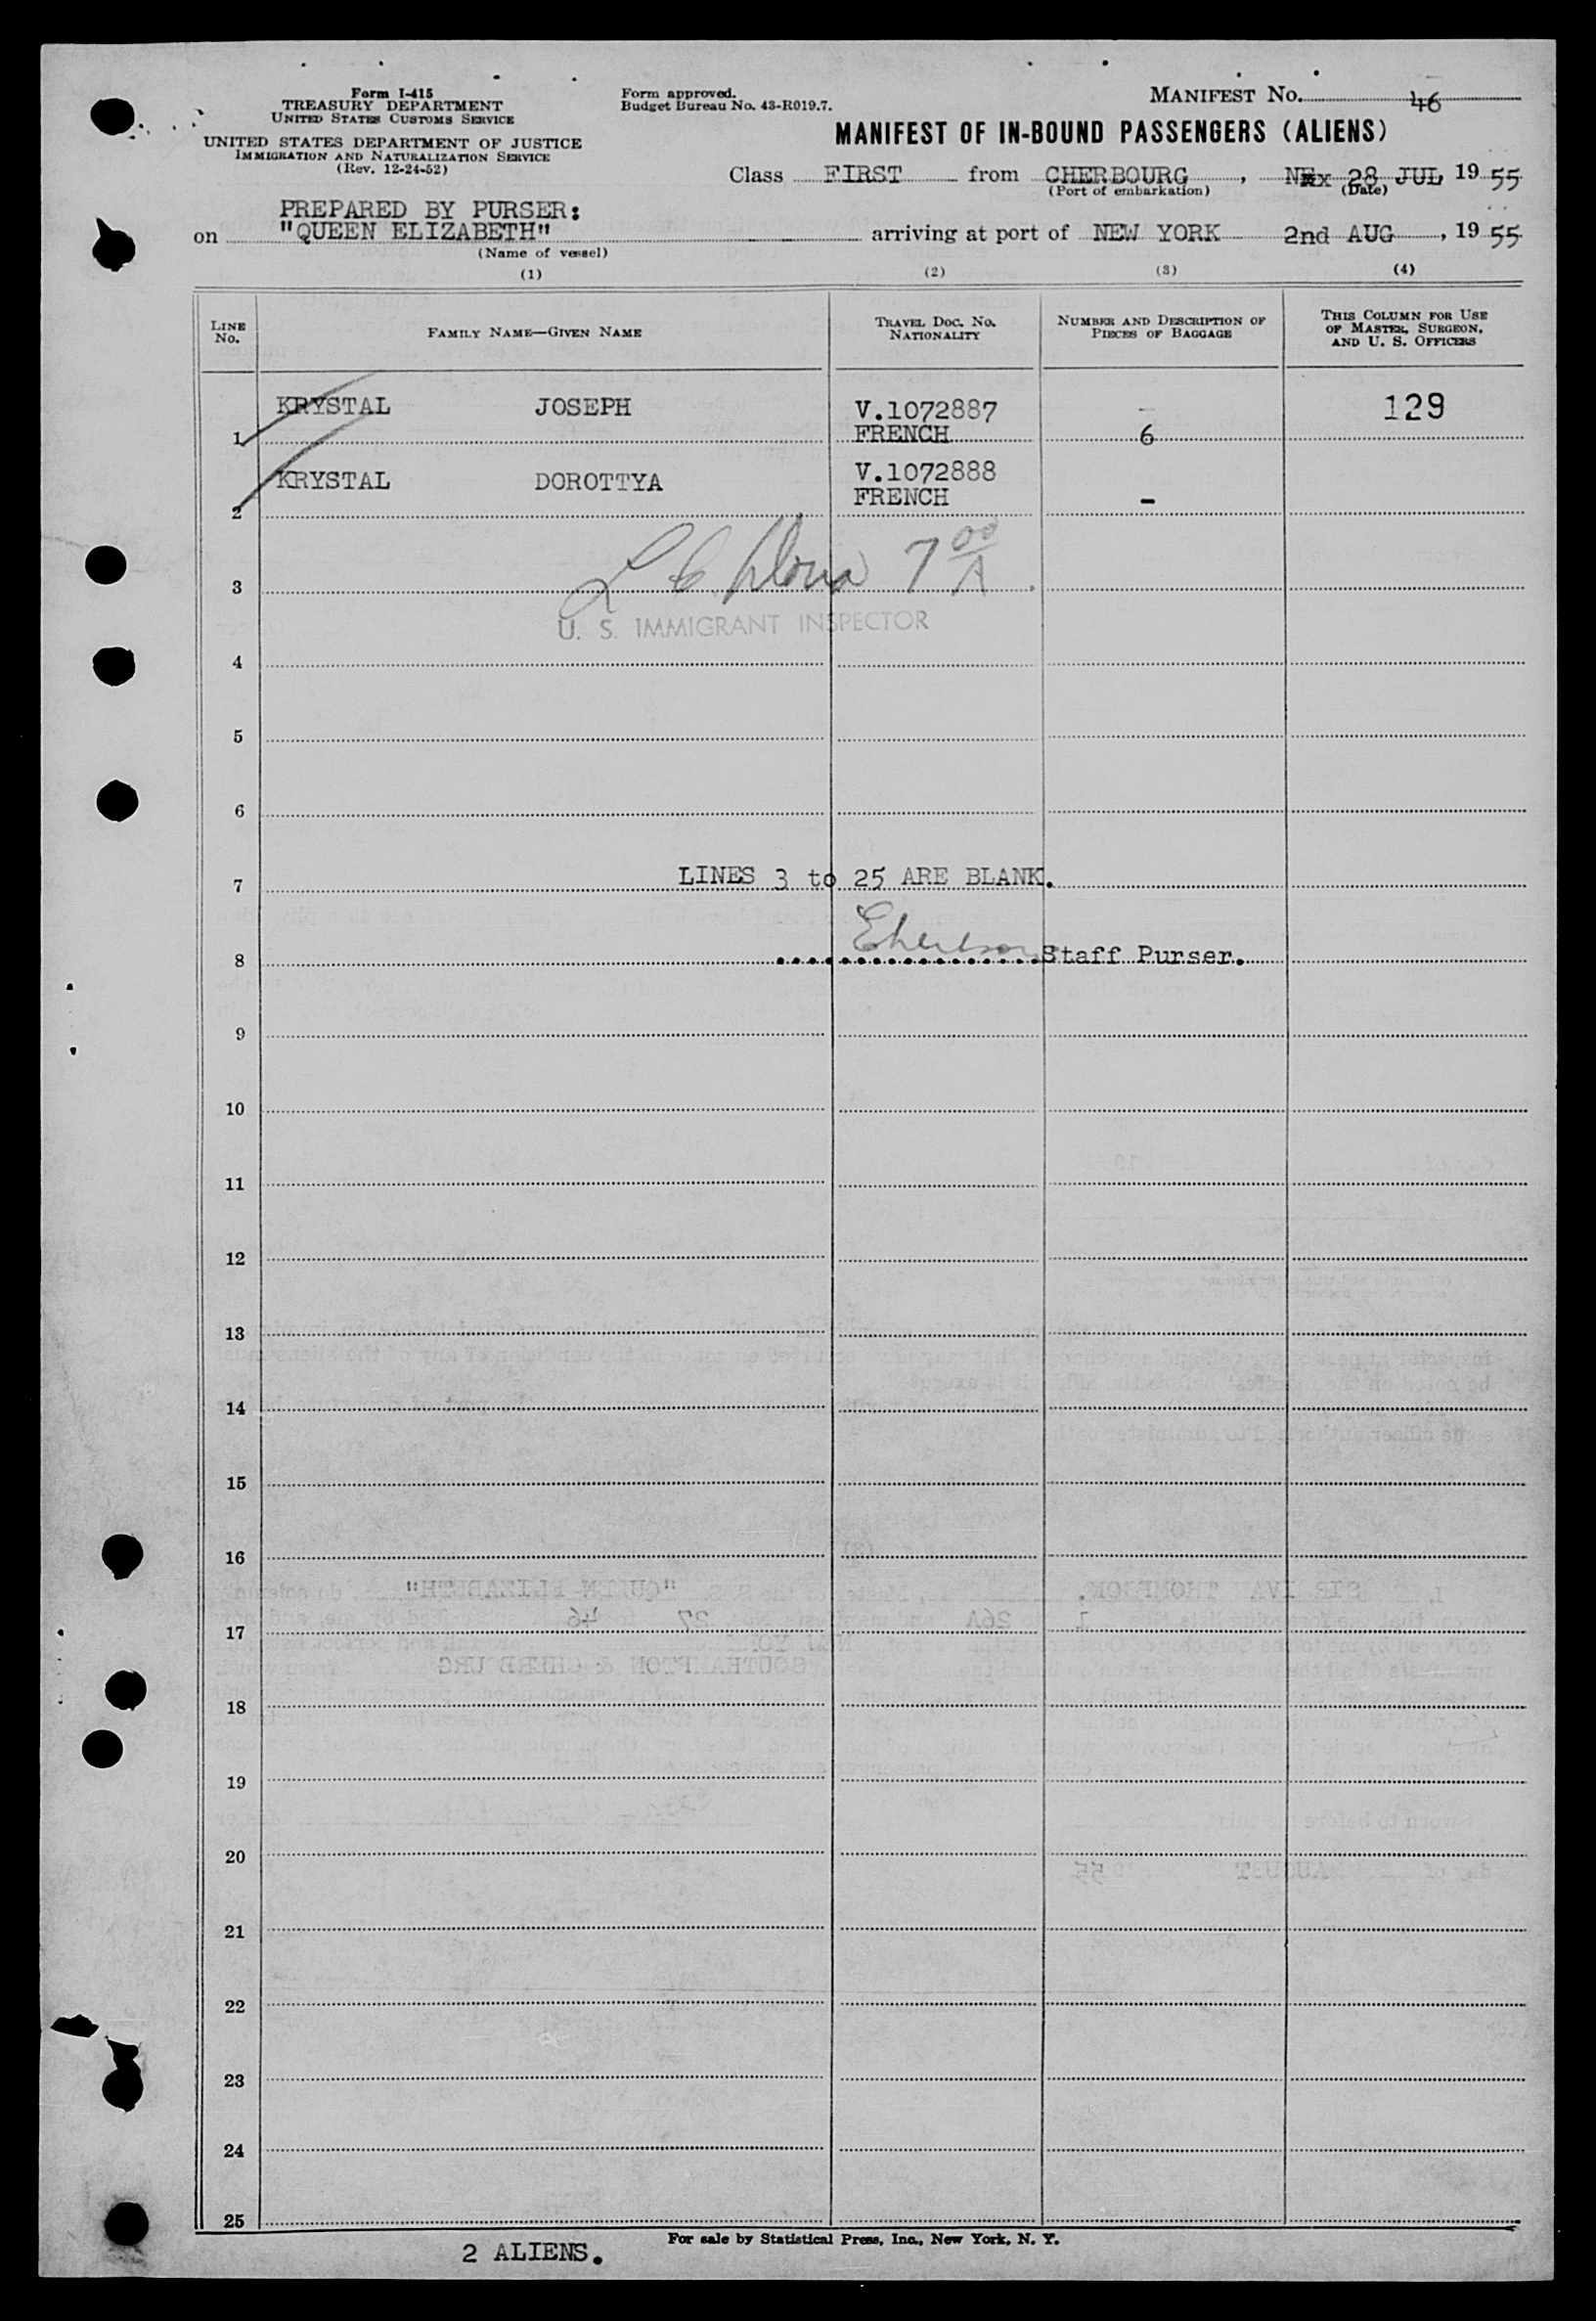 Form I-415
TREASURY DEPARTMENT
UNITED STATES CUSTOMS SERVICE
UNITED STATES DEPARTMENT OF JUSTICE
IMMIGRATION AND NATURALIZATION SERVICE
(Rev. 12-24-52)
Form approved.
Budget Bureau No. 43-R019.7.
MANIFEST No. 46
MANIFEST OF IN-BOUND PASSENGERS (ALIENS)
Class FIRST from CHERBOURG, 28 JUL 1955
(Port of embarkation) (Date)
PREPARED BY PURSER:
on "QUEEN ELIZABETH" arriving at port of NEW YORK 2nd AUG, 1955
(Name of vessel)
(1) (2) (3) (4)
LINE No. FAMILY NAME—GIVEN NAME TRAVEL DOC. No. NATIONALITY NUMBER AND DESCRIPTION OF PIECES OF BAGGAGE THIS COLUMN FOR USE OF MASTER, SURGEON, AND U. S. OFFICERS
KRYSTAL JOSEPH V.1072887 – 129
1 FRENCH 6
KRYSTAL DOROTTYA V.1072888
2 FRENCH -
3 7 00 A
U. S. IMMIGRANT INSPECTOR
4
5
6
7 LINES 3 to 25 ARE BLANK.
8 Staff Purser.
9
10
11
12
13
14
15
16
17
18
19
20
21
22
23
24
25
For sale by Statistical Press, Inc., New York, N. Y.
2 ALIENS.